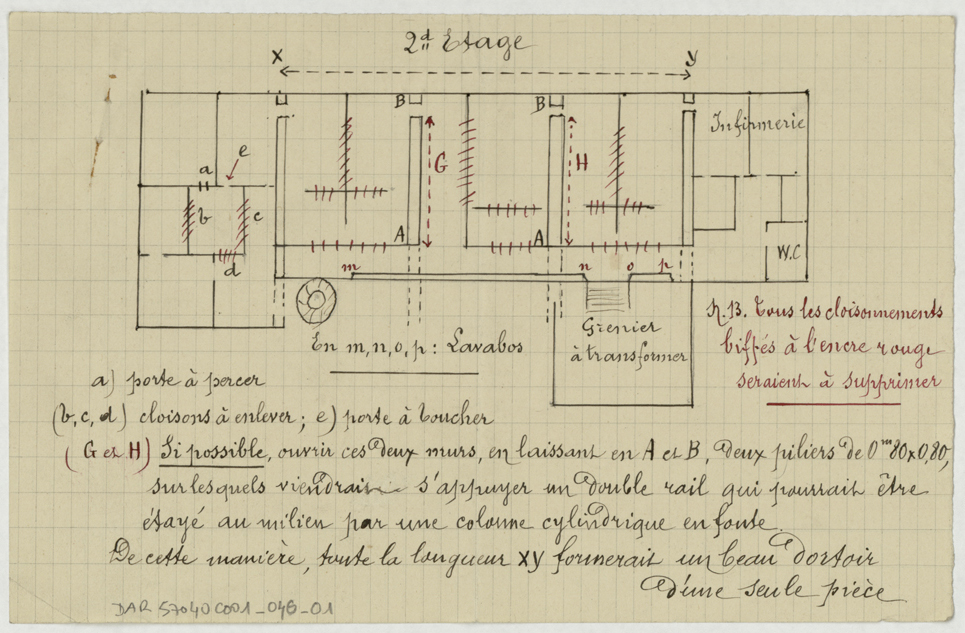 2d Etage
X
Y
B
B
Infirmerie
a
e
G
H
b
c
A
A
d
W.C
m
n
o
p
Grenier
à transformer
N.B. Tous les cloisonnements
biffés à l'encre rouge
seraient à supprimer
En m, n, o, p : Lavabos
a) porte à percer
(b, c, d) cloisons à enlever ; e) porte à boucher
(G et H) Si possible, ouvrir ces deux murs, en laissant en A et B, deux piliers de 0m80 x 0,80,
sur lesquels viendrait s'appuyer un double rail qui pourrait être
étayé au milieu par une colonne cylindrique en fonte.
De cette manière, toute la longueur XY formerait un beau dortoir
d'une seule pièce
DAR 57040C001_048_01